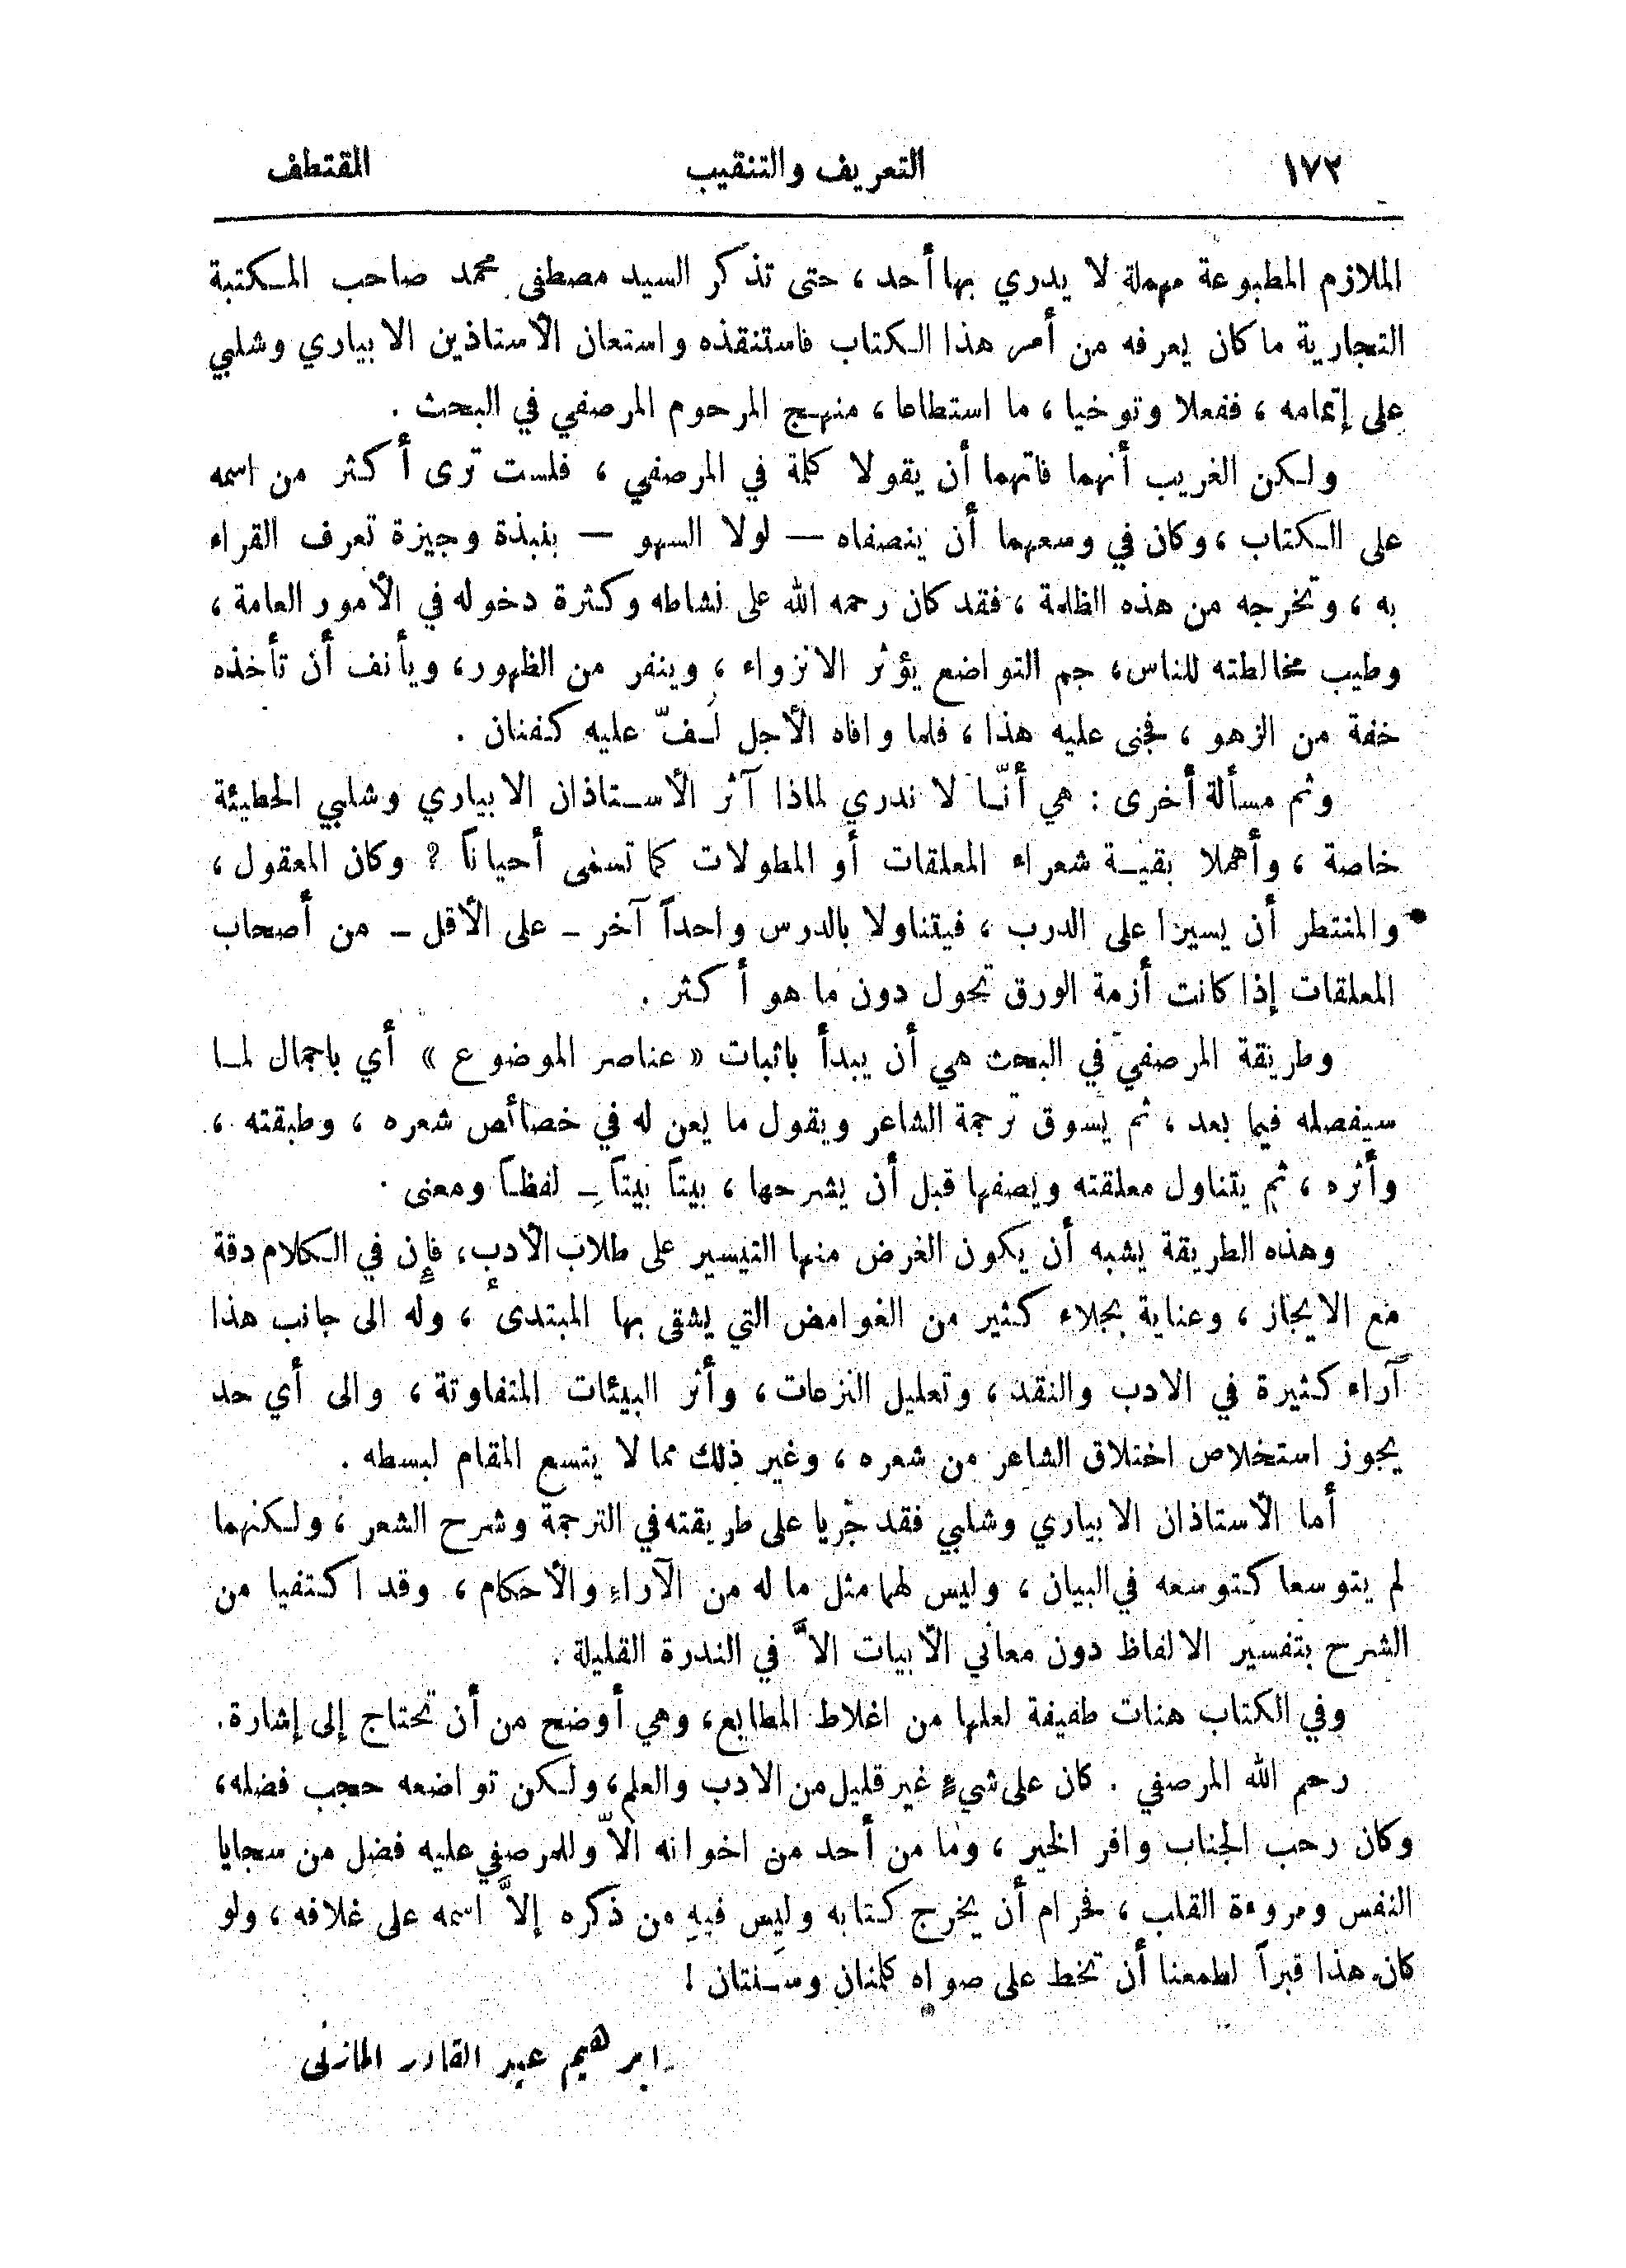 ١٧٢ التعريف والتنقيب المقتطف
الملازم المطبوعة مهملة لا يدري بها أحد ، حتى تذكر السيد مصطفى محمد صاحب المكتبة
التجارية ما كان يعرفه من أمر هذا الكتاب فاستنقذه واستعان الأستاذين الابياري وشلبي
على إتمامه ، ففعلا وتوخيا ، ما استطاعا ، منهج المرحوم المرصفي في البحث .
ولكن الغريب أنهما فاتهما أن يقولا كلمة في المرصفي ، فلست ترى أكثر من اسمه
على الكتاب ، وكان في وسعهما أن ينصفاه — لولا السهو — بنبذة وجيزة تعرف القراء
به ، وتخرجه من هذه الظلمة ، فقد كان رحمه الله على نشاطه وكثرة دخوله في الأمور العامة ،
وطيب مخالطته للناس ، جم التواضع يؤثر الانزواء ، وينفر من الظهور ، ويأنف أن تأخذه
خفة من الزهو ، فجنى عليه هذا ، فلما وافاه الأجل لُفّ عليه كفنان .
وثم مسألة أخرى : هي أنّا لا ندري لماذا آثر الأستاذان الابياري وشلبي الحطيئة
خاصة ، وأهملا بقية شعراء المعلقات أو المطولات كما تسمى أحياناً ؟ وكان المعقول ،
والمنتظر أن يسيرا على الدرب ، فيتناولا بالدرس واحداً آخر – على الأقل – من أصحاب
المعلقات إذا كانت أزمة الورق تحول دون ما هو أكثر .
وطريقة المرصفي في البحث هي أن يبدأ باثبات « عناصر الموضوع » أي باجمال لما
سيفصله فيما بعد ، ثم يسوق ترجمة الشاعر ويقول ما يعن له في خصائص شعره ، وطبقته ،
وأثره ، ثم يتناول معلقته ويصفها قبل أن يشرحها ، بيتاً بيتاً – لفظاً ومعنى .
وهذه الطريقة يشبه أن يكون الغرض منها التيسير على طلاب الأدب ، فإن في الكلام دقة
مع الايجاز ، وعناية بجلاء كثير من الغوامض التي يشقى بها المبتدئ ، وله الى جانب هذا
آراء كثيرة في الادب والنقد ، وتعليل النزعات ، وأثر البيئات المتفاوتة ، والى أي حد
يجوز استخلاص اختلاق الشاعر من شعره ، وغير ذلك مما لا يتسع المقام لبسطه .
أما الأستاذان الابياري وشلبي فقد جريا على طريقته في الترجمة وشرح الشعر ، ولكنهما
لم يتوسعا كتوسعه في البيان ، وليس لهما مثل ما له من الآراء والأحكام ، وقد اكتفيا من
الشرح بتفسير الالفاظ دون معاني الأبيات الاَّ في الندرة القليلة .
وفي الكتاب هنات طفيفة لعلها من اغلاط المطابع ، وهي أوضح من أن تحتاج إلى إشارة .
رحم الله المرصفي . كان على شيءٍ غير قليل من الادب والعلم ، ولكن تواضعه حجب فضله ،
وكان رحب الجناب وافر الخير ، وما من أحد من اخوانه الاّ وللمرصفي عليه فضل من سجايا
النفس ومروءة القلب ، فحرام أن يخرج كتابه وليس فيهِ من ذكره إلاَّ اسمه على غلافه ، ولو
كان هذا قبراً لطمعنا أن تخط على صواه كلمتان وسنتان !
ابرهيم عبد القادر المازني